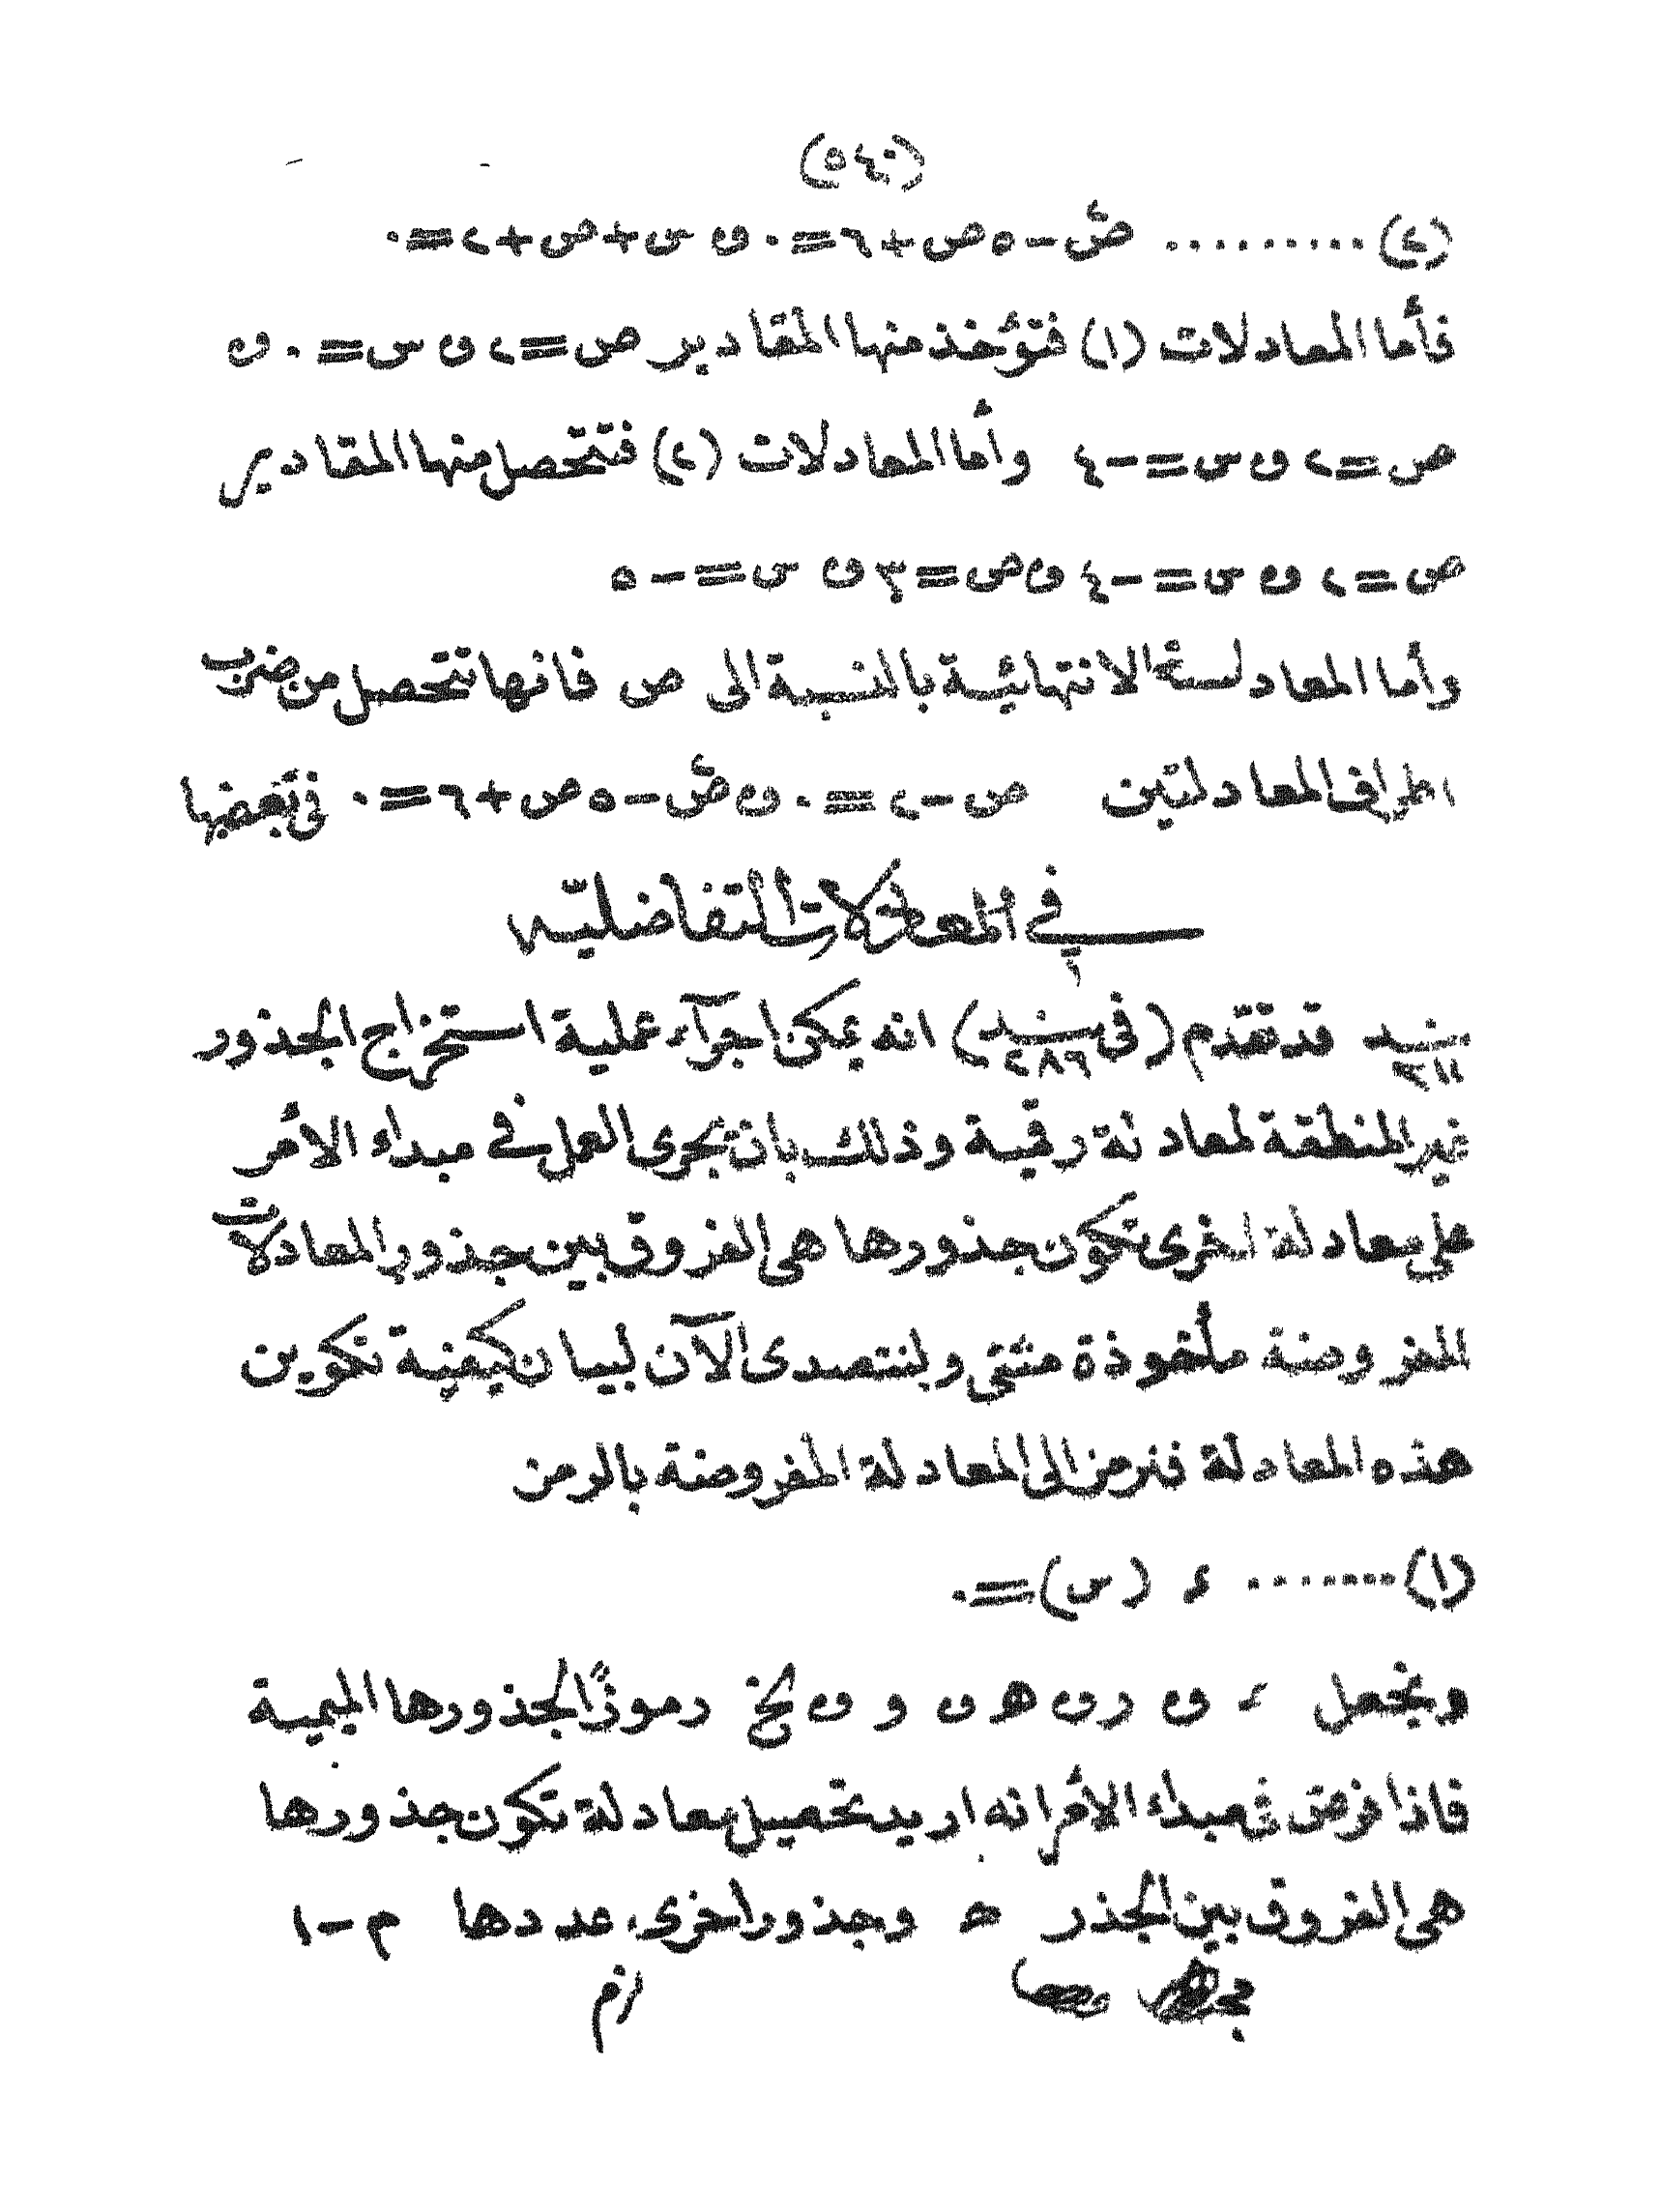 (٥٤٠)
(٢) .......... صّ-٥ص+٦=٠ و س+ص+٢=٠
فأما المعادلات (١) فتؤخذ منها المقادير ص=٢ و س=٠ و
ص=٢ و س=-٤ وأما المعادلات (٢) فتتحصل منها المقادير
ص=٢ و س=-٤ و ص=٣ و س=-٥
وأما المعادلة الانتهائية بالنسبة الى ص فانها تتحصل من ضرب
اطراف المعادلتين ص-٢=٠ و صّ-٥ص+٦=٠ فى بعضها
فى المعادلات التفاضليه
بند ٣١١ قد تقدم (فى بند ٢٨٦) انه يمكن اجرآء عملية استخراج الجذور
غير المنطقة لمعادلة رقمية وذلك بان يجرى العمل فى مبداء الأمر
على معادلة اخرى تكون جذورها هى الفروق بين جذور المعادلات
المفروضة مأخوذة مثنى ولنتصدى الآن لبيان كيفية تكوين
هذه المعادلة فنرمز الى المعادلة المفروضة بالرمز
(١) ........ ء (س)=٠
ونجعل ء و ر و ه و و و الخ رموزًا لجذورها الميمية
فاذا فرض فى مبداء الأمر انه اريد تحصيل معادلة تكون جذورها
هى الفروق بين الجذر ء وجذور اخرى عددها م-١
لزم